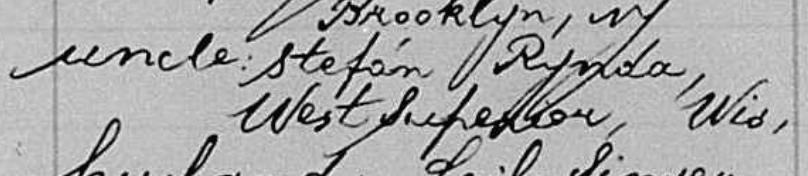 Brooklyn, NY
uncle: Stefán Rynda,
West Superior, Wis,
husband